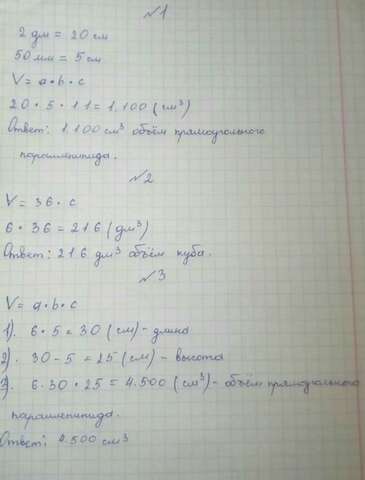 №1
2 дм = 20 см
50 мм = 5 см
V = a • b • c
20 • 5 • 11 = 1.100 (см³)
Ответ: 1.100 см³ объём прямоугольного
параллепипида.
№2
V = 36 • c
6 • 36 = 216 (дм³)
Ответ: 216 дм³ объём куба.
№3
V = a • b • c
1). 6 • 5 = 30 (см) - длина
2). 30 - 5 = 25 (см) - высота
3). 6 • 30 • 25 = 4.500 (см³) - объём прямоугольного
параллепипида.
Ответ: 4.500 см³